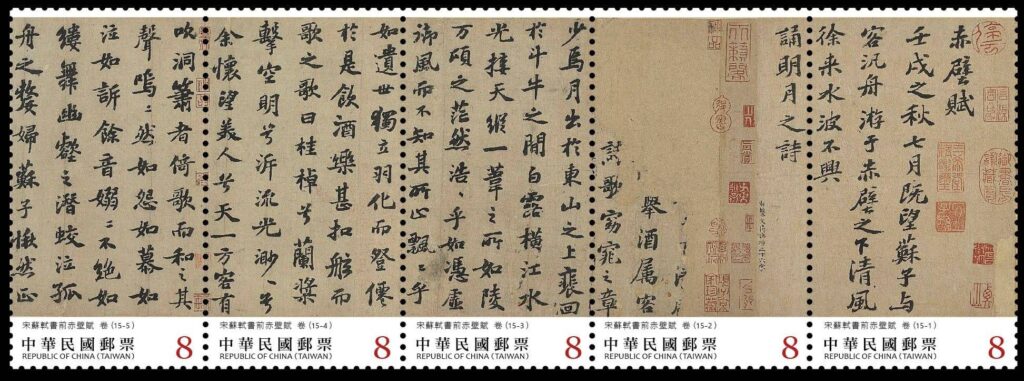 赤壁賦
壬戌之秋七月既望蘇子与
客汎舟游于赤壁之下清風
徐来水波不興
誦明月之詩
舉酒属客
歌窈窕之章
少焉月出於東山之上裵回
於斗牛之間白露横江水
光接天縱一葦之所如陵
万頃之茫然浩乎如馮虚
御風而不知其所止飄〻乎
如遺世獨立羽化而登僊
於是飲酒樂甚扣舷而
歌之歌曰桂棹兮蘭槳
擊空明兮泝流光渺〻兮
余懷望美人兮天一方客有
吹洞簫者倚歌而和之其
聲嗚〻然如怨如慕如
泣如訴餘音嫋〻不絶如
縷舞幽壑之潜蛟泣孤
舟之嫠婦蘇子愀然正
宋蘇軾書前赤壁賦 卷 (15-5)
中華民國郵票 8
REPUBLIC OF CHINA (TAIWAN)
宋蘇軾書前赤壁賦 卷 (15-4)
中華民國郵票 8
REPUBLIC OF CHINA (TAIWAN)
宋蘇軾書前赤壁賦 卷 (15-3)
中華民國郵票 8
REPUBLIC OF CHINA (TAIWAN)
宋蘇軾書前赤壁賦 卷 (15-2)
中華民國郵票 8
REPUBLIC OF CHINA (TAIWAN)
宋蘇軾書前赤壁賦 卷 (15-1)
中華民國郵票 8
REPUBLIC OF CHINA (TAIWAN)